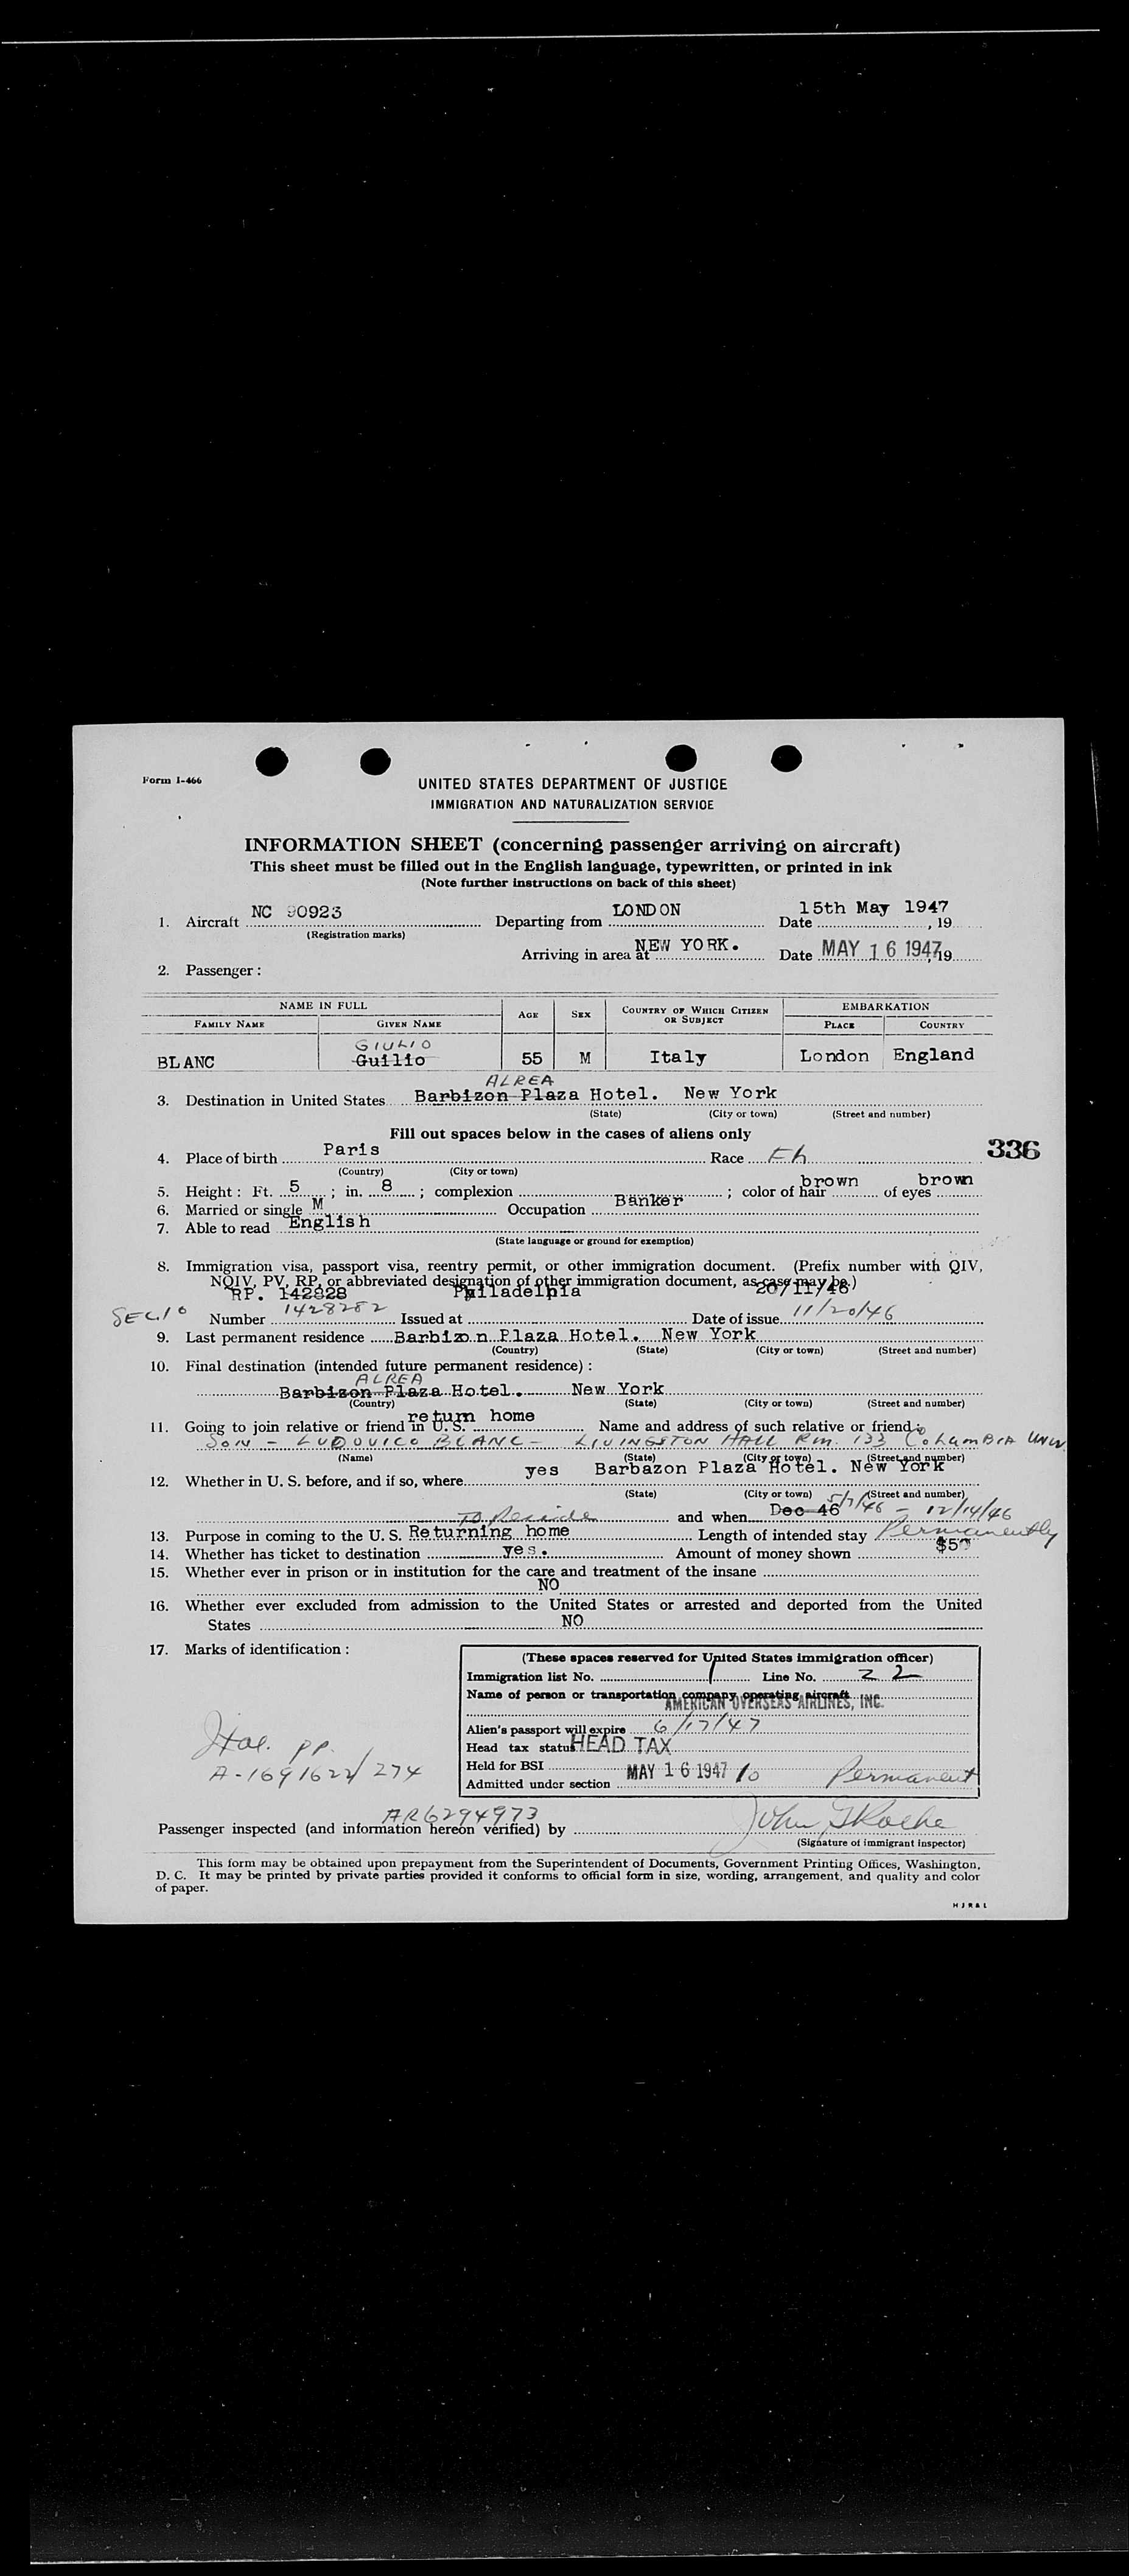 Form I-466
UNITED STATES DEPARTMENT OF JUSTICE
IMMIGRATION AND NATURALIZATION SERVICE
INFORMATION SHEET (concerning passenger arriving on aircraft)
This sheet must be filled out in the English language, typewritten, or printed in ink
(Note further instructions on back of this sheet)
1. Aircraft NC 90923 Departing from LONDON Date 15th May 1947, 19
(Registration marks)
Arriving in area at NEW YORK. Date MAY 16 1947, 19
2. Passenger :
NAME IN FULL AGE SEX COUNTRY OF WHICH CITIZEN OR SUBJECT EMBARKATION
FAMILY NAME GIVEN NAME PLACE COUNTRY
GIULIO
BLANC Guilio 55 M Italy London England
ALREA
3. Destination in United States Barbizon Plaza Hotel. New York
(State) (City or town) (Street and number)
Fill out spaces below in the cases of aliens only
336
4. Place of birth Paris Race
(Country) (City or town)
5. Height : Ft. 5 ; in. 8 ; complexion ; color of hair brown of eyes brown
6. Married or single M Occupation Banker
7. Able to read English
(State language or ground for exemption)
8. Immigration visa, passport visa, reentry permit, or other immigration document. (Prefix number with QIV,
NQIV, PV, RP, or abbreviated designation of other immigration document, as case may be.)
RP. 142828 Philadelphia 20/11/46
SEC. 10 Number 1428282 Issued at Date of issue 11/20/46
9. Last permanent residence Barbizon Plaza Hotel. New York
(Country) (State) (City or town) (Street and number)
10. Final destination (intended future permanent residence) :
ALREA
Barbizon Plaza Hotel. New York
(Country) (State) (City or town) (Street and number)
11. Going to join relative or friend in U. S. return home Name and address of such relative or friend :
SON - LUDOVICO BLANC - LIVINGSTON HALL Rm. 133 COLUMBIA UNIV
(Name) (State) (City or town) (Street and number)
12. Whether in U. S. before, and if so, where yes Barbazon Plaza Hotel. New York
(State) (City or town) (Street and number)
To Reside and when Dec 46 5/7/46 - 12/14/46
13. Purpose in coming to the U. S. Returning home Length of intended stay Permanently
14. Whether has ticket to destination yes. Amount of money shown
15. Whether ever in prison or in institution for the care and treatment of the insane
NO
16. Whether ever excluded from admission to the United States or arrested and deported from the United
States NO
17. Marks of identification :
(These spaces reserved for United States immigration officer)
Immigration list No. 1 Line No. 22
Name of person or transportation company operating aircraft
AMERICAN OVERSEAS AIRLINES, INC.
Alien's passport will expire 6/17/47
Head tax status HEAD TAX
Held for BSI
Admitted under section MAY 16 1947 10 Permanent
Ital. pp.
A-1691622/274
AR6294973
Passenger inspected (and information hereon verified) by John G Roche
(Signature of immigrant inspector)
This form may be obtained upon prepayment from the Superintendent of Documents, Government Printing Offices, Washington,
D. C. It may be printed by private parties provided it conforms to official form in size, wording, arrangement, and quality and color
of paper.
H J R & L